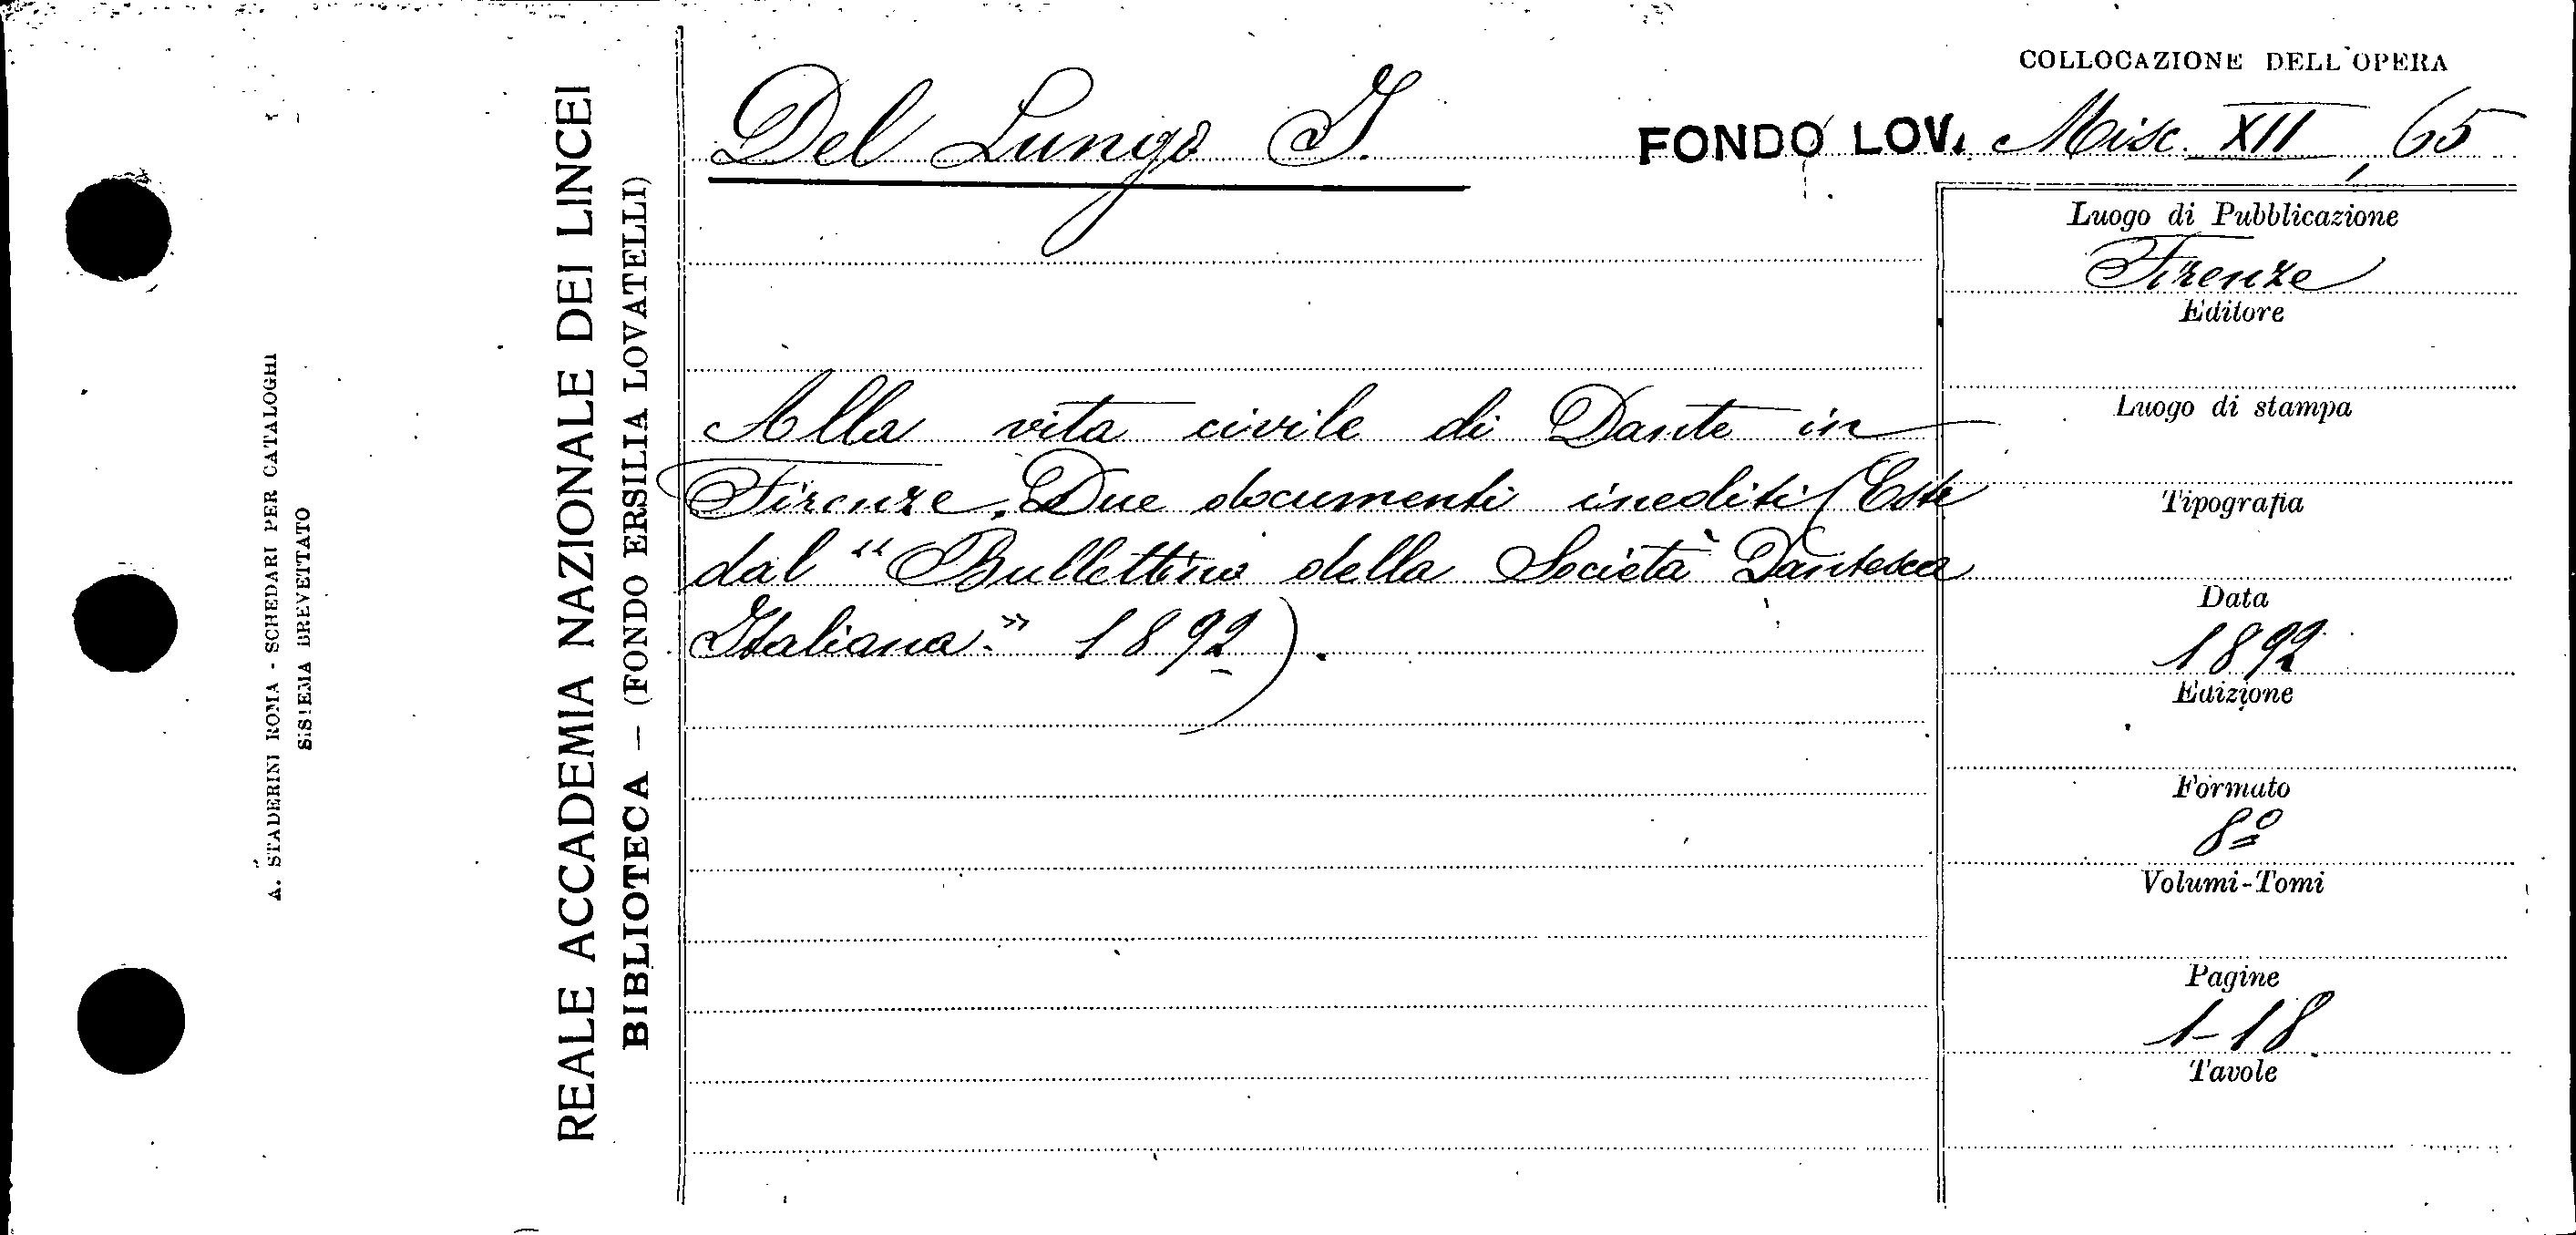 A. STADERINI ROMA - SCHEDARI PER CATALOGHI
SISTEMA BREVETTATO
REALE ACCADEMIA NAZIONALE DEI LINCEI
BIBLIOTECA — (FONDO ERSILIA LOVATELLI)
COLLOCAZIONE DELL'OPERA
Del Lungo I.
FONDO LOV. Misc. XII, 65
Alla vita civile di Dante in
Firenze. Due documenti inediti (Estr
dal "Bullettino della Società Dantesca
Italiana." 1892).
Luogo di Pubblicazione
Firenze
Editore
Luogo di stampa
Tipografia
Data
1892
Edizione
Formato
8º
Volumi-Tomi
Pagine
1-18
Tavole